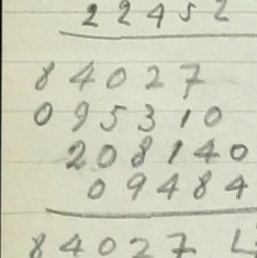 22452
84027
095310
208140
09484
84027